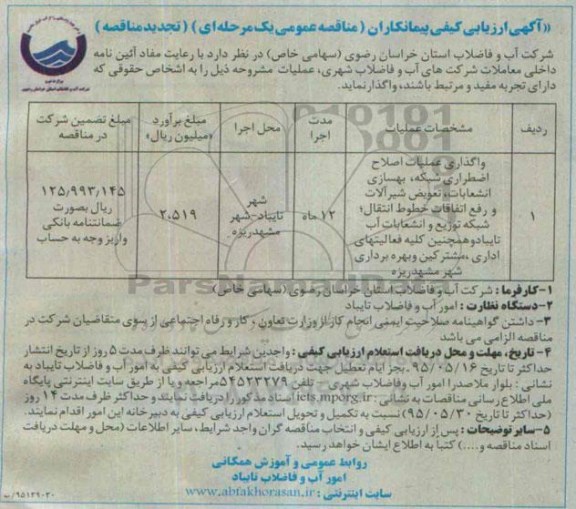 «آگهی ارزیابی کیفی پیمانکاران (مناقصه عمومی یک مرحله ای) (تجدید مناقصه)
شرکت آب و فاضلاب استان خراسان رضوی (سهامی خاص) در نظر دارد با رعایت مفاد آئین نامه
داخلی معاملات شرکت های آب و فاضلاب شهری، عملیات مشروحه ذیل را به اشخاص حقوقی که
دارای تجربه مفید و مرتبط باشند، واگذار نماید.
ردیف
مشخصات عملیات
مدت اجرا
محل اجرا
مبلغ برآورد «میلیون ریال»
مبلغ تضمین شرکت در مناقصه
۱
واگذاری عملیات اصلاح
اضطراری شبکه، بهسازی
انشعابات، تعویض شیرآلات
و رفع اتفاقات خطوط انتقال؛
شبکه توزیع و انشعابات آب
تایباد و همچنین کلیه فعالیتهای
اداری، مشترکین و بهره برداری
شهر مشهدریزه
۱۲ ماه
شهر
تایباد-شهر
مشهدریزه
۲،۵۱۹
۱۲۵٫۹۹۳٫۱۴۵
ریال بصورت
ضمانتنامه بانکی
واریز وجه به حساب
۱-کارفرما: شرکت آب و فاضلاب استان خراسان رضوی (سهامی خاص)
۲-دستگاه نظارت: امور آب و فاضلاب تایباد
۳- داشتن گواهینامه صلاحیت ایمنی انجام کار از وزارت تعاون، کار و رفاه اجتماعی از سوی متقاضیان شرکت در
مناقصه الزامی می باشد
۴- تاریخ، مهلت و محل دریافت استعلام ارزیابی کیفی: واجدین شرایط می توانند ظرف مدت ۵ روز از تاریخ انتشار
حداکثر تا تاریخ ۹۵/۰۵/۱۶ بجز ایام تعطیل جهت دریافت استعلام ارزیابی کیفی به امور آب و فاضلاب تایباد به
نشانی: بلوار ملاصدرا امور آب و فاضلاب شهری - تلفن ۵۴۵۲۳۲۷۹ مراجعه و یا از طریق سایت اینترنتی پایگاه
ملی اطلاع رسانی مناقصات به نشانی: iets.mporg.ir اسناد مذکور را دریافت نمایند و حداکثر ظرف مدت ۱۴ روز
(حداکثر تا تاریخ ۹۵/۰۵/۳۰) نسبت به تکمیل و تحویل استعلام ارزیابی کیفی به دبیرخانه این امور اقدام نمایند.
۵-سایر توضیحات: پس از ارزیابی کیفی و انتخاب مناقصه گران واجد شرایط، سایر اطلاعات (محل و مهلت دریافت
اسناد مناقصه و....) کتبا به اطلاع ایشان خواهد رسید.
روابط عمومی و آموزش همگانی
امور آب و فاضلاب تایباد
سایت اینترنتی: www.abfakhorasan.ir
۹۵۱۲۹۰۲۰/ب